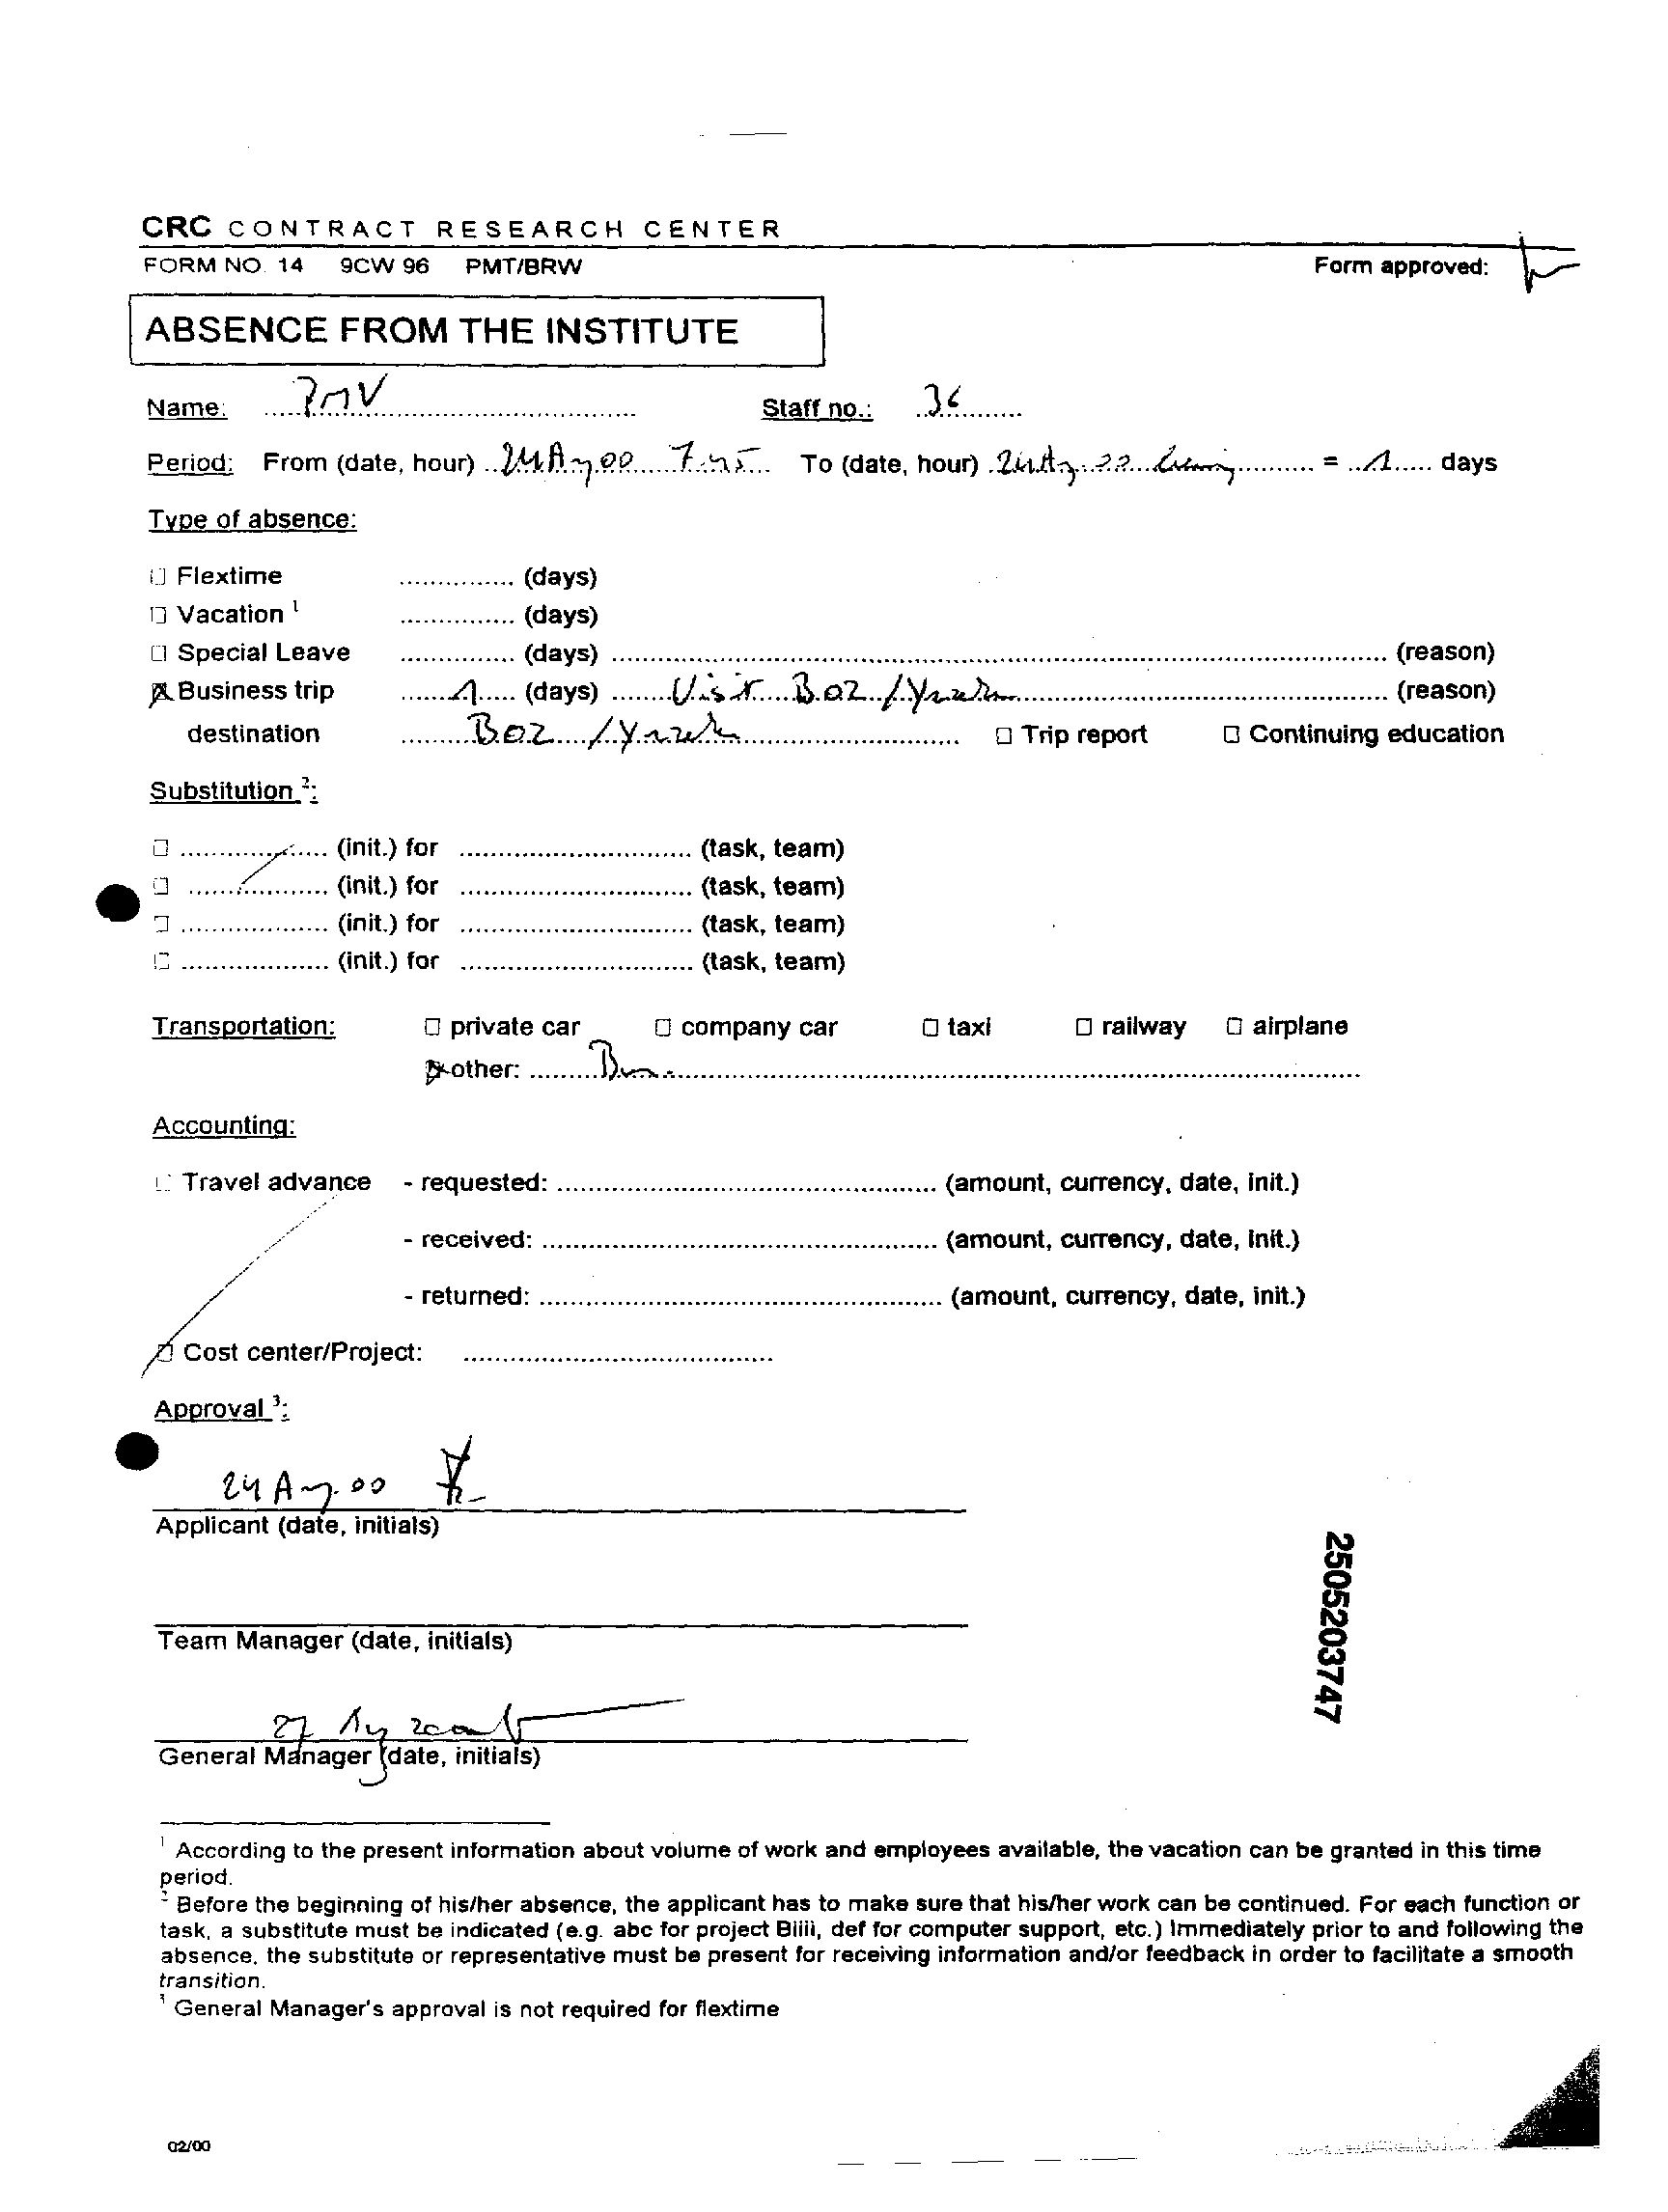 CRC CONTRACT RESEARCH CENTER
FORM NO. 14 9CW 96 PMT/BRW Form approved:
ABSENCE FROM THE INSTITUTE
Name: PMV Staff no.: 36
Period: From (date, hour) 24 Aug 00 7.45 To (date, hour) 24 Aug 00 = 1 days
Type of absence:
Flextime (days)
Vacation 1 (days)
Special Leave (days) (reason)
Business trip 1 (days) Visit BOZ / (reason)
destination BOZ / Trip report Continuing education
Substitution 2:
(init.) for (task, team)
(init.) for (task, team)
(init.) for (task, team)
(init.) for (task, team)
Transportation: private car company car taxi railway airplane
other:
Accounting:
Travel advance - requested: (amount, currency, date, init.)
- received: (amount, currency, date, init.)
- returned: (amount, currency, date, init.)
Cost center/Project:
Approval 3:
24 Aug. 00
Applicant (date, initials)
2505203747
Team Manager (date, initials)
27 Aug 2000
General Manager (date, initials)
1 According to the present information about volume of work and employees available, the vacation can be granted in this time
period.
2 Before the beginning of his/her absence, the applicant has to make sure that his/her work can be continued. For each function or
task, a substitute must be indicated (e.g. abc for project Biiii, def for computer support, etc.) Immediately prior to and following the
absence, the substitute or representative must be present for receiving information and/or feedback in order to facilitate a smooth
transition.
3 General Manager's approval is not required for flextime
02/00